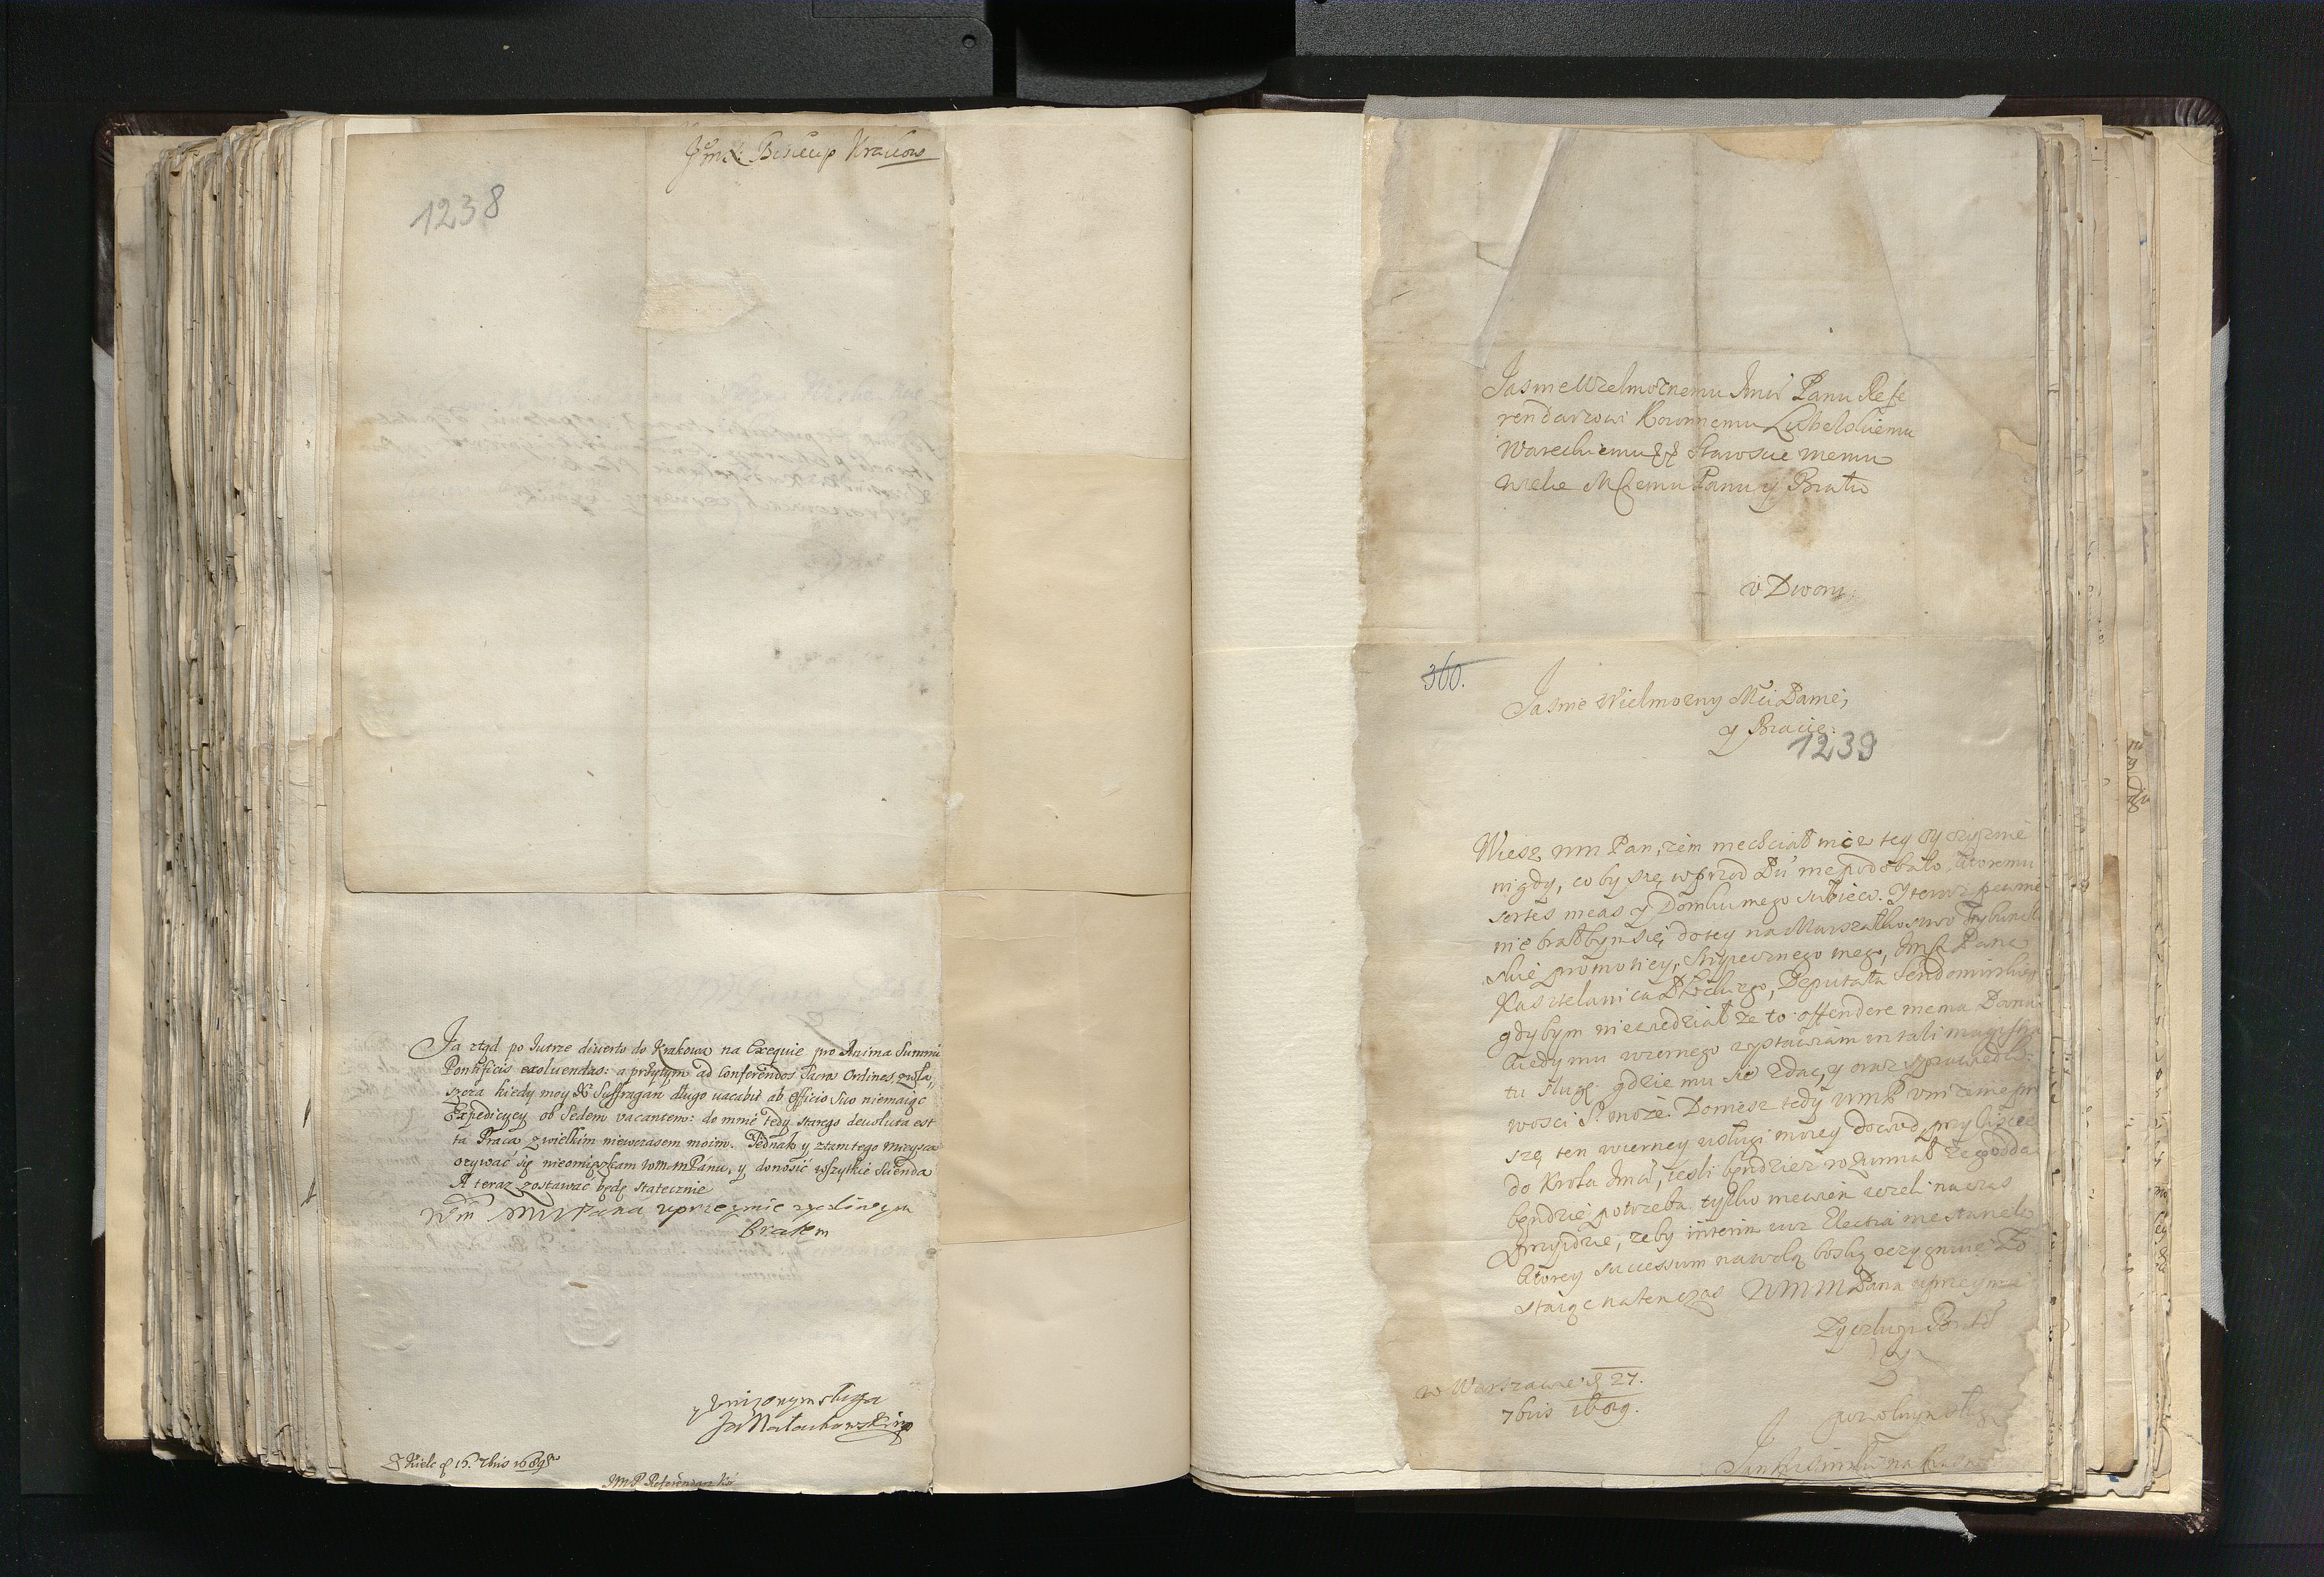 Jo mć Biskup Krakow
1238
Ja ztąd po Jutrze diverto do Krakowa na Exequie pro Anima Summi
Pontificis exoluendas: a przytym ad Conferendos Sacros Ordines, zwła,
szcza kiedy moy X Suffragan długo vacabit ab officio suo niemaiąc
Expedicyey ob Sedem vacantem: do mnie tedy starego deuoluta est
ta Praca z wielkim niewczasem moim. Jednak y ztamtego mieysca
ozywać się nieomięszkam WmmPanu, y donosić wszytkie Scienda
A teraz zostawać będę statecznie
Wm MM Pana uprzeymie zyczliwym
Bratem
y unizonym sługą
Jan Małachowski
z Kielc d 16. 7bris 1689
JMP Referendarz Ko
Jasnie Wielmoznemu Jmsc Panu Refe
rendarzowi Koronnemu Lubelskiemu
Wareckiemu Staroscie memu
Wielce Mscemu Panu y Bratu
u Dworu
360.
Jasnie Wielmozny Msci Panie,
y Bracie.
1239
Wiesz mm Pan, zem niechciał nic w tey oyczyznie
nigdy, co by się wprzod Pu niepodobało, ktoremu
sortes meas y Domku mego subieci. Y teraz pewnie
nie brałbym się do tey na Marszałkostwo Trybunal
skie promotiey, Stryiecznego mego, Jmsc Pana
Kasztelanica Deputata Sendomirskiego
gdybym niewiedział ze to offendere niema Pana
kiedy mu wiernego wystawiam in tali magistra
tu sługę gdzie mu się zdac, y oraz sprawiedli
wosci S. moze. Doniesz tedy wmP unizenie pro
szę ten wierney usługi moiey dowod, przy liscie
do Krola Jmsci, iesli będziesz rozumiał ze godda
będzie potrzeba tylko niewiem iezeli na czas
przyidzie, zeby interim iuz Electia niestanęła
ktorey successum na wolą boską rezygnuię Zo
staiąc natenczas WMM Pana uprzeymie
Zyczliwym Bratem
y
powolnym sługą
w Warszawie d 27.
7bris 1689.